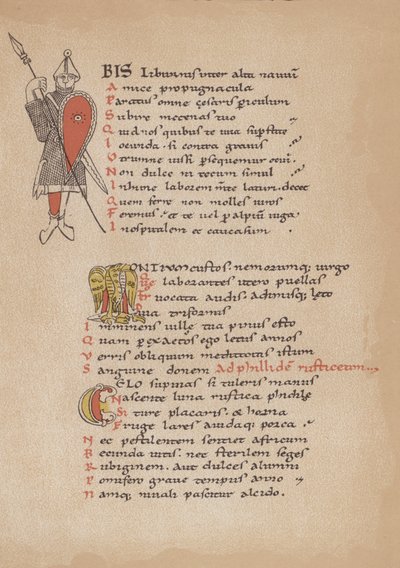 BIS Liburnis inter alta naviū
Amice propugnacula
Paratus omne cesaris periculum
Subire mecenas tuo
Quid nos quibus te vita superstite
Iocunda. si contra gravis
Utrumne iussi persequemur ociū.
Non dulce ni tecum simul
In hunc laborem mente laturi. decet
Quem ferre non molles viros
Feremus. et te vel per alpiū iuga
Inospitalem et caucasum
MONTIVM custos. nemorumq; virgo
Que laborantes utero puellas
Ter vocata audis. adimisq; leto
Diva triformis
Imminens ville tua pinus esto
Quam per exactos ego letus annos
Verris obliquum meditantis ictum
Sanguine donem Ad phillidē rusticam
CELO supinas si tuleris manus
Nascente luna rustica phidile
Si ture placaris. & horna
Fruge lares avidaq; porca
Nec pestilentem sentiet africum
Fecunda vitis. nec sterilem seges
Rubiginem. Aut dulces alumni
Pomifero grave tempus anno
Namq; nivali pascitur algido.